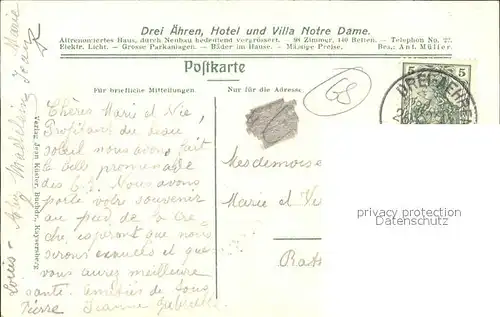 Drei Ähren, Hotel und Villa Notre Dame.
Altrenommiertes Haus, durch Neubau bedeutend vergrössert. — 98 Zimmer, 140 Betten. — Telephon No. 27.
Elektr. Licht. — Grosse Parkanlagen. — Bäder im Hause. — Mässige Preise. Bes.: Ant. Müller.
Postkarte
Für briefliche Mitteilungen.
Nur für die Adresse
68
5 5
DREI AEHREN
Chères Marie et Vie,
Profitans du beau
soleil nous avons fait
la belle promenade
des Nous avons
porté votre souvenir
au pied de la Crè-
che, esperant que nous
serons exaucés et que
vous aurez meilleure
santé. Amitiés de tous
Pierre Jeanne
Louis - Madeleine Jean Marie
Mesdemoise
Marie et Vi
Bats
Verlag Jean Köster, Buchdr., Kaysersberg
privacy protection
watermark